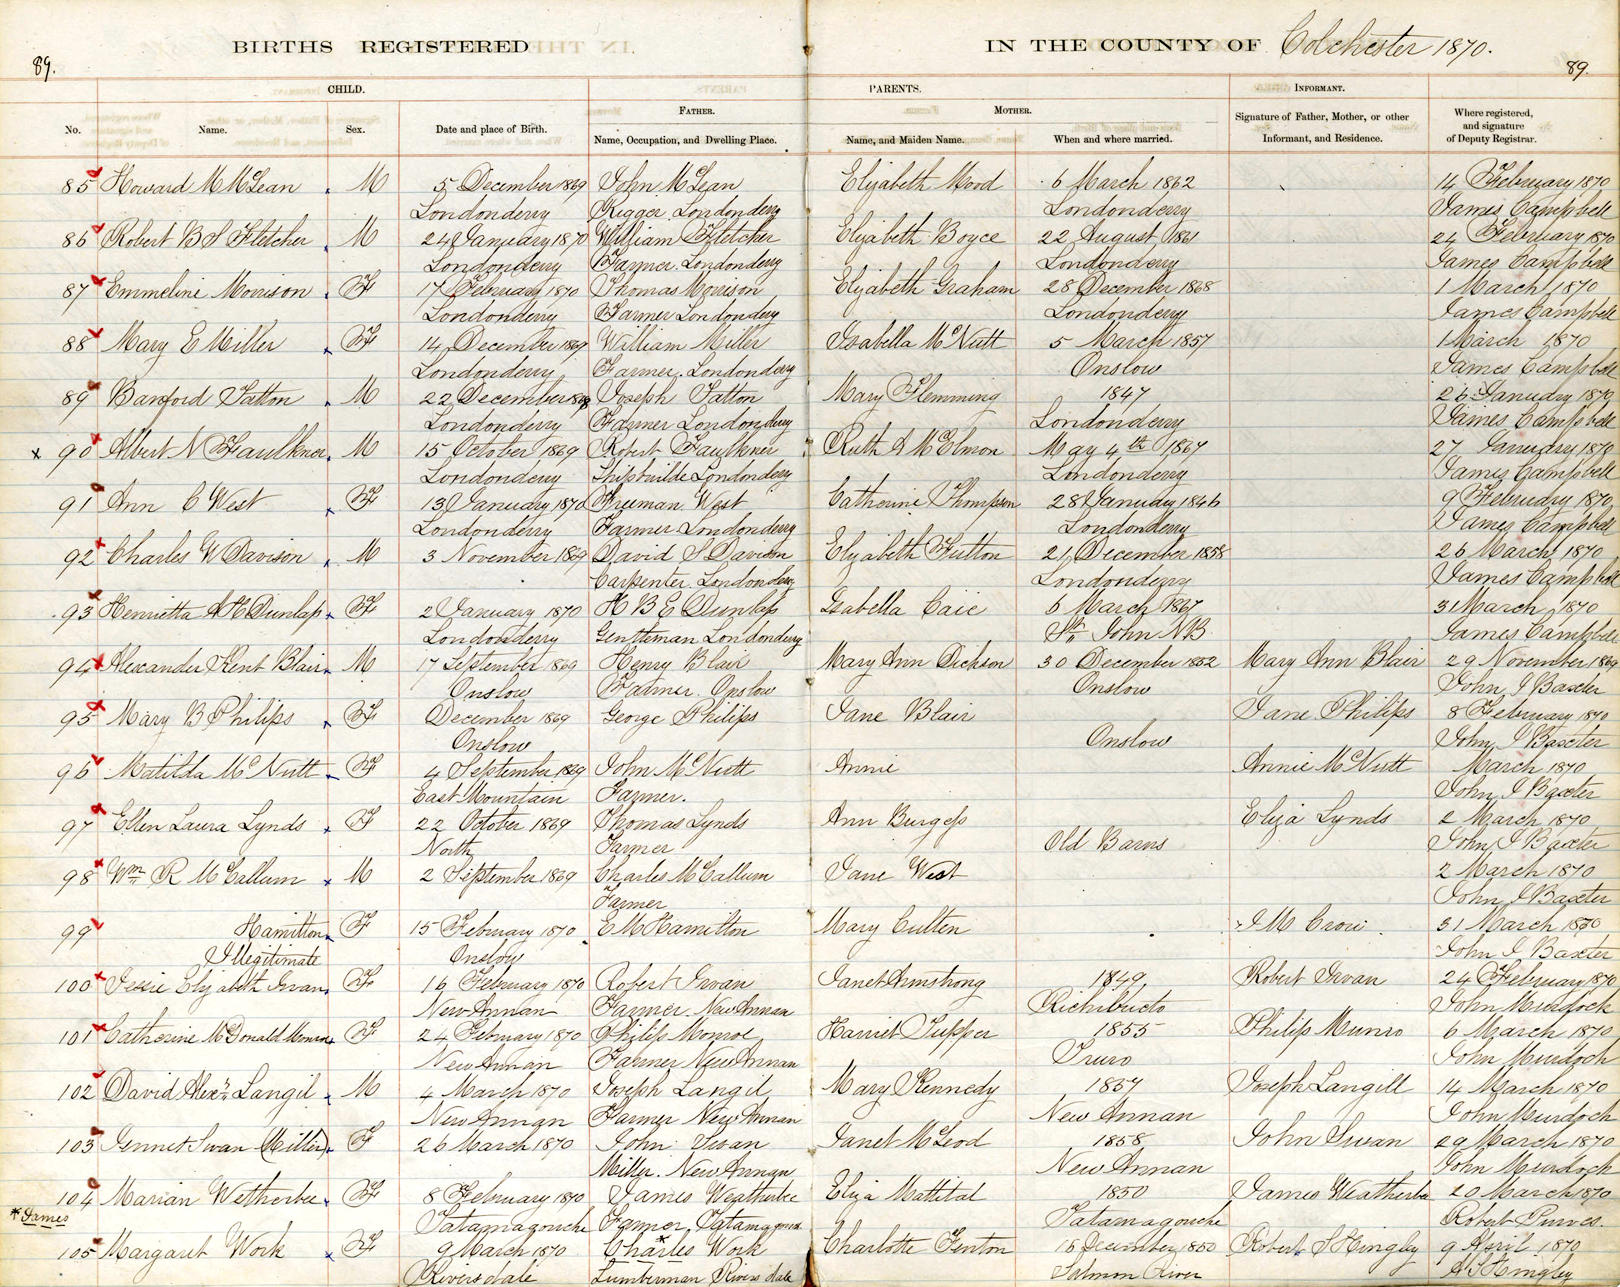 BIRTHS REGISTERED IN THE COUNTY OF Colchester 1870.
89. 89.
CHILD. PARENTS. INFORMANT.
FATHER. MOTHER.
No. Name. Sex. Date and place of Birth. Name, Occupation, and Dwelling Place. Name, and Maiden Name. When and where married. Signature of Father, Mother, or other Informant, and Residence. Where registered, and signature of Deputy Registrar.
85 Howard M McLean M 5 December 1869 John McLean Elizabeth Mood 6 March 1862 14 February 1870
Londonderry Rigger Londonderry Londonderry James Campbell
86 Robert B S Fletcher M 24 January 1870 William Fletcher Elizabeth Boyce 22 August 1861 24 February 1870
Londonderry Farmer. Londonderry Londonderry James Campbell
87 Emmeline Morrison F 17 February 1870 Thomas Morrison Elizabeth Graham 28 December 1868 1 March 1870
Londonderry Farmer Londonderry Londonderry James Campbell
88 Mary E Miller F 14 December 1869 William Miller Isabella McNutt 5 March 1857 1 March 1870
Londonderry Farmer. Londonderry Onslow James Campbell
89 Banford Tatton M 22 December Joseph Tatton Mary Flemming 1847 26 January 1870
Londonderry Farmer Londonderry Londonderry James Campbell
x 90 Albert N Faulkner M 15 October 1869 Robert Faulkner Ruth A McElmon May 4th 1867 27 January 1870
Londonderry Shipbuilder Londonderry Londonderry James Campbell
91 Ann C West F 13 January 1870 Freeman West Catherine Thompson 28 January 1846 9 February 1870
Londonderry Farmer Londonderry Londonderry James Campbell
92 Charles W Davison M 3 November 1869 David S Davison Elizabeth Fulton 21 December 1858 26 March 1870
Carpenter. Londonderry Londonderry James Campbell
93 Henrietta A H Dunlap F 2 January 1870 H B E Dunlap Isabella Caie 6 March 1867 31 March 1870
Londonderry Gentleman Londonderry St. John NB James Campbell
94 Alexander Kent Blair M 17 September 1869 Henry Blair Mary Ann Dickson 30 December 1852 Mary Ann Blair 29 November 1869
Onslow Farmer. Onslow Onslow John I Baxter
95 Mary B Philips F December 1869 George Philips Jane Blair Jane Philips 8 February 1870
Onslow Onslow John I Baxter
96 Matilda McNutt F 4 September 1869 John McNutt Annie Annie McNutt March 1870
East Mountain Farmer. John I Baxter
97 Ellen Laura Lynds F 22 October 1869 Thomas Lynds Ann Burgess Eliza Lynds 2 March 1870
North Farmer Old Barns John I Baxter
98 Wm R McCallum M 2 September 1869 Charles McCallum Jane West 2 March 1870
Farmer John I Baxter
99 Hamilton F 15 February 1870 E M Hamilton Mary Culten J M Crow 31 March 1870
Illegitimate Onslow John I Baxter
100 Jessie Elizabeth Swan F 16 February 1870 Robert Swan Janet Armstrong 1849 Robert Swan 24 February 1870
New Annan Farmer New Annan Richibucto John Murdock
101 Catherine McDonald Monroe F 24 February 1870 Philip Monroe Harriet Tupper 1855 Philip Munro 6 March 1870
New Annan Farmer New Annan Truro John Murdoch
102 David Alexr Langil M 4 March 1870 Joseph Langil Mary Kennedy 1857 Joseph Langill 14 March 1870
New Annan Farmer New Annan New Annan John Murdoch
103 Jennet Swan (Miller) F 26 March 1870 John Swan Janet McLeod 1858 John Swan 29 March 1870
Miller. New Annan New Annan John Murdoch
104 Marian Wetherbee F 8 February 1870 James Weatherbee Eliza Mattatal 1850 James Weatherbe 20 March 1870
* James Tatamagouche Farmer, Tatamagouche Tatamagouche Robert Purves.
105 Margaret Work F 9 March 1870 Charles* Work Charlotte Fenton 16 December 1850 Robert S Hingley 9 April 1870
Riversdale Lumberman Riversdale Salmon River R S Hingley